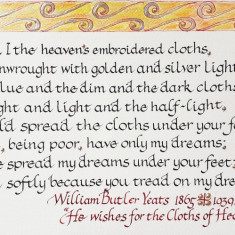 I the heaven's embroidered cloths,
nwrought with golden and silver light
lue and the dim and the dark cloths
ght and light and the half-light.
ld spread the cloths under your fe
, being poor, have only my dreams;
e spread my dreams under your feet;
softly because you tread on my dream
William Butler Yeats 1865 1939
"He wishes for the Cloths of Hea